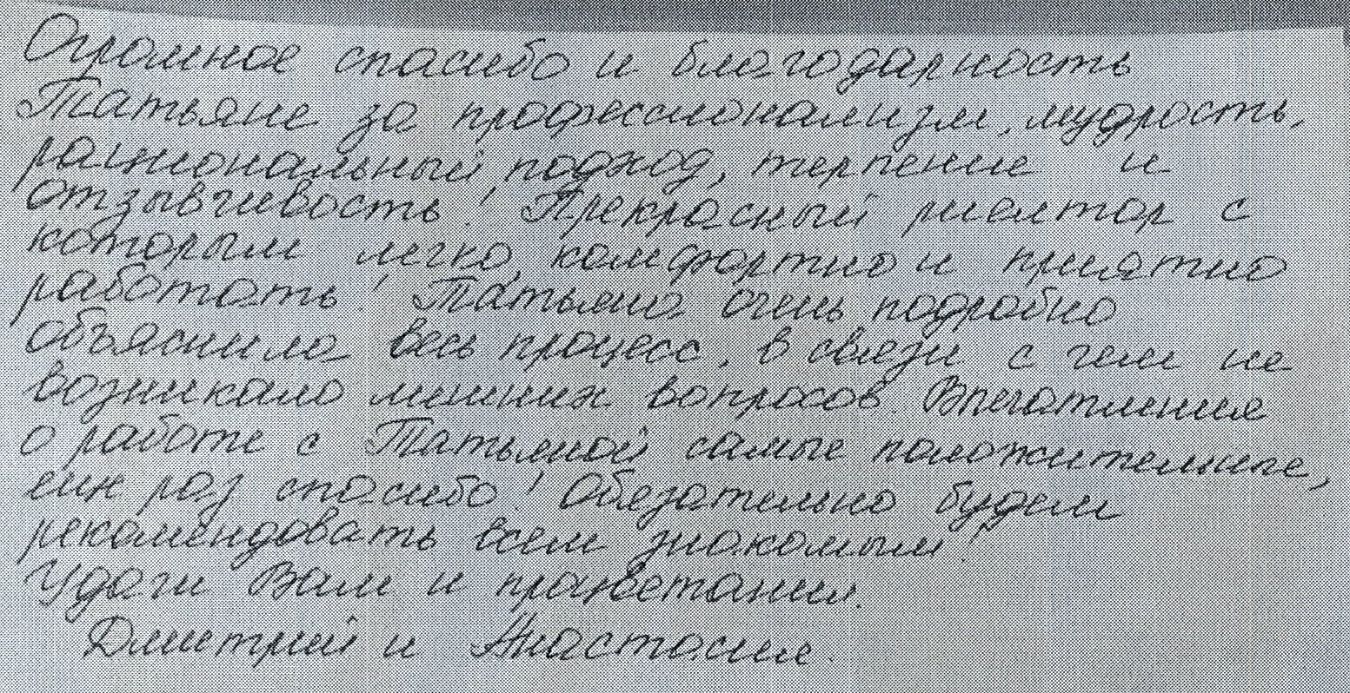 Огромное спасибо и благодарность
Татьяне за профессионализм, мудрость,
рациональный подход, терпение и
отзывчивость! Прекрасный риелтор с
которым легко, комфортно и приятно
работать! Татьяна очень подробно
объяснила весь процесс, в связи с чем не
возникало лишних вопросов. Впечатления
о работе с Татьяной самые положительные,
еще раз спасибо! Обязательно будем
рекомендовать всем знакомым!
Удачи Вам и процветания.
Дмитрий и Анастасия.